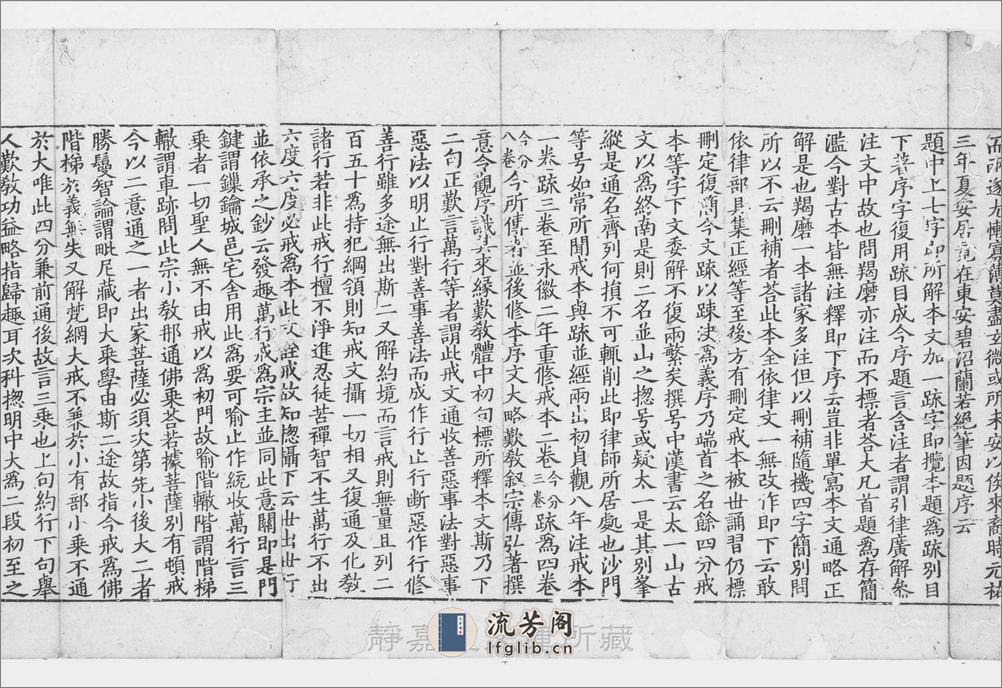 三年夏安居竟在東安碧沼蘭若絕筆因題序云
題中上七字即所解本文加一䟽字即攬本題為䟽別目
下著序字復用䟽目成今序題言含注者謂引律廣解叅
注文中故也問羯磨亦注而不標者荅大凡首題為存簡
濫今對古本皆無注釋即下序云豈非單寫本文通略正
解是也羯磨一本諸家多注但以刪補隨機四字簡別問
所以不云刪補者荅此本全依律文一無改作即下云敢
依律部具集正經等至後方有刪定戒本被世誦習仍標
刪定復簡今文䟽以踈決為義序乃端首之名餘四分戒
本等字下文委解不復兩繫矣撰号中漢書云太一山古
文以為終南是則二名並山之揔号或疑太一是其別峯
縱是通名齊列何損不可輒削此即律師所居處也沙門
等号如常所聞戒本與䟽並經兩出初貞觀八年注戒本
一卷䟽三卷至永徽二年重修戒本二卷今分三卷䟽為四卷
今分八卷今所傳者並後修本序文大略歎教叙宗傳弘著撰
意令觀序識其來緣歎教體中初句標所釋本文斯乃下
二句正歎言萬行等者謂此戒文通收善惡事法對惡事
惡法以明止行對善事善法而成作行止行斷惡作行修
善行雖多途無出斯二又解約境而言戒則無量且列二
百五十為持犯綱領則知戒文攝一切相又復通及化教
諸行若非此戒行檀不淨進忍徒苦禪智不生萬行不出
六度六度必戒為本此文詮戒故知揔攝下云出世出世行
並依承之鈔云發趣萬行戒為宗主並同此意關即是門
鍵謂鏁鑰城邑宅舍用此為要可喻止作統收萬行言三
乘者一切聖人無不由戒以為初門故喻階轍階謂階梯
轍謂車跡問此宗小教那通佛乘荅若據菩薩別有頓戒
今以二意通之一者出家菩薩必須次第先小後大二者
勝鬘智論謂毗尼藏即大乘學由斯二途故指今戒為佛
階梯於義無失又解梵網大戒不兼於小有部小乘不通
於大唯此四分兼前通後故言三乘也上句約行下句舉
人歎教功益略指歸趣耳次科揔明中大為二段初至之
靜嘉
所藏
流芳阁
lfglib.cn